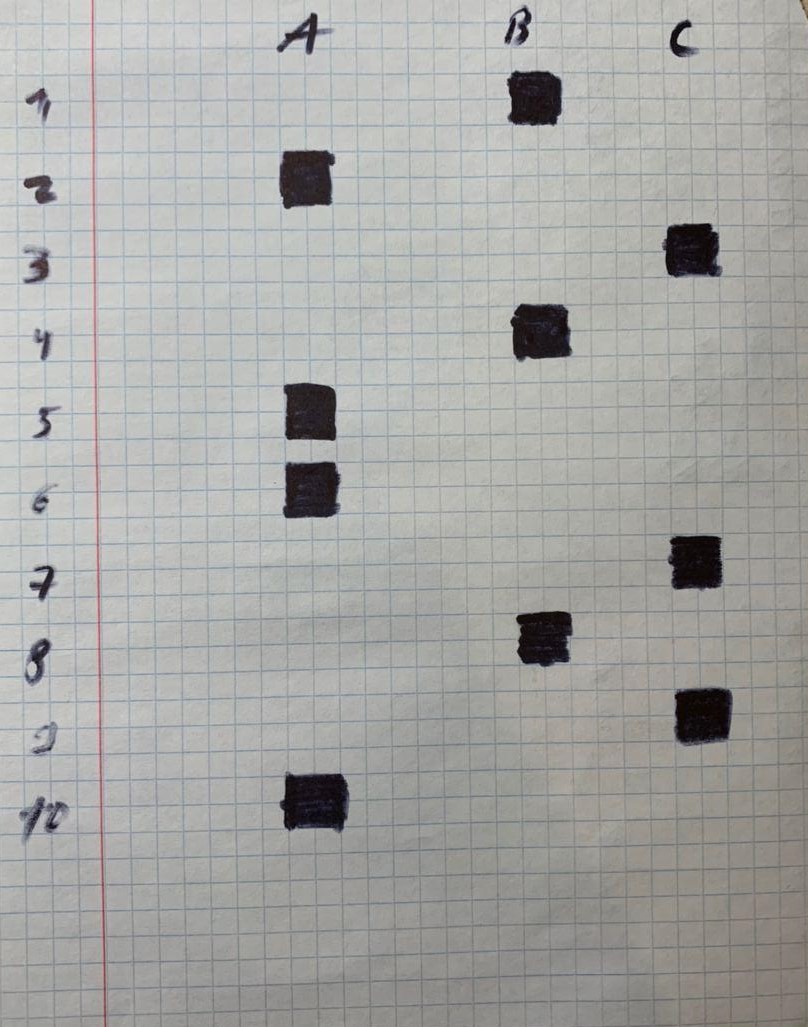 A B C
1
2
3
4
5
6
7
8
9
10